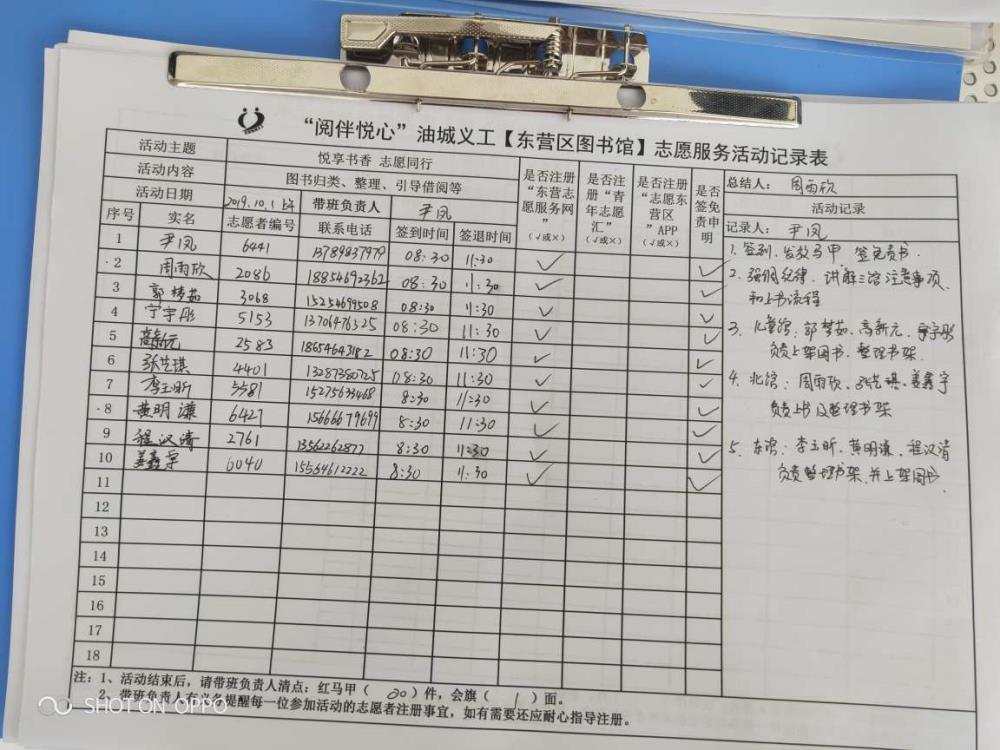 “阅伴悦心”油城义工【东营区图书馆】志愿服务活动记录表
活动主题 悦享书香 志愿同行 是否注册“东营志愿服务网”（√或×） 是否注册“青年志愿汇”（√或×） 是否注册“志愿东营区”APP（√或×） 是否签免责申明 总结人：周雨欣
活动内容 图书归类、整理、引导借阅等 活动记录
活动日期 2019.10.1 上午 带班负责人 尹凤 记录人：尹凤
序号 实名 志愿者编号 联系电话 签到时间 签退时间
1 尹凤 6441 13789837979 08:30 11:30 √ √
2 周雨欣 2086 18854692362 08:30 11:30 √ √
3 郭梦茹 3068 15254699508 08:30 11:30 √ √
4 宁宇彤 5153 13706476525 08:30 11:30 √ √
5 高新元 2583 18654643182 08:30 11:30 √ √
6 张艺琪 4401 13287380725 08:30 11:30 √ √
7 李玉昕 5581 15275633468 8:30 11:30 √ √
8 黄明潇 6427 15666679699 8:30 11:30 √ √
9 程汉清 2761 13562262877 8:30 11:30 √ √
10 姜鑫宇 6040 15564612222 8:30 11:30 √ √
11
12
13
14
15
16
17
18
1. 签到、发放马甲、签免责书.
2. 强调纪律、讲解三馆注意事项、
和上书流程
3. 儿童馆：郭梦茹、高新元、宁宇彤
负责上架图书、整理书架.
4. 北馆：周雨欣、张艺琪、姜鑫宇
负责上书及整理书架
5. 东馆：李玉昕、黄明潇、程汉清
负责整理书架,并上架图书.
注：1、活动结束后，请带班负责人清点：红马甲（ 20 ）件，会旗（ 1 ）面。
2、带班负责人有义务提醒每一位参加活动的志愿者注册事宜，如有需要还应耐心指导注册。
SHOT ON OPPO